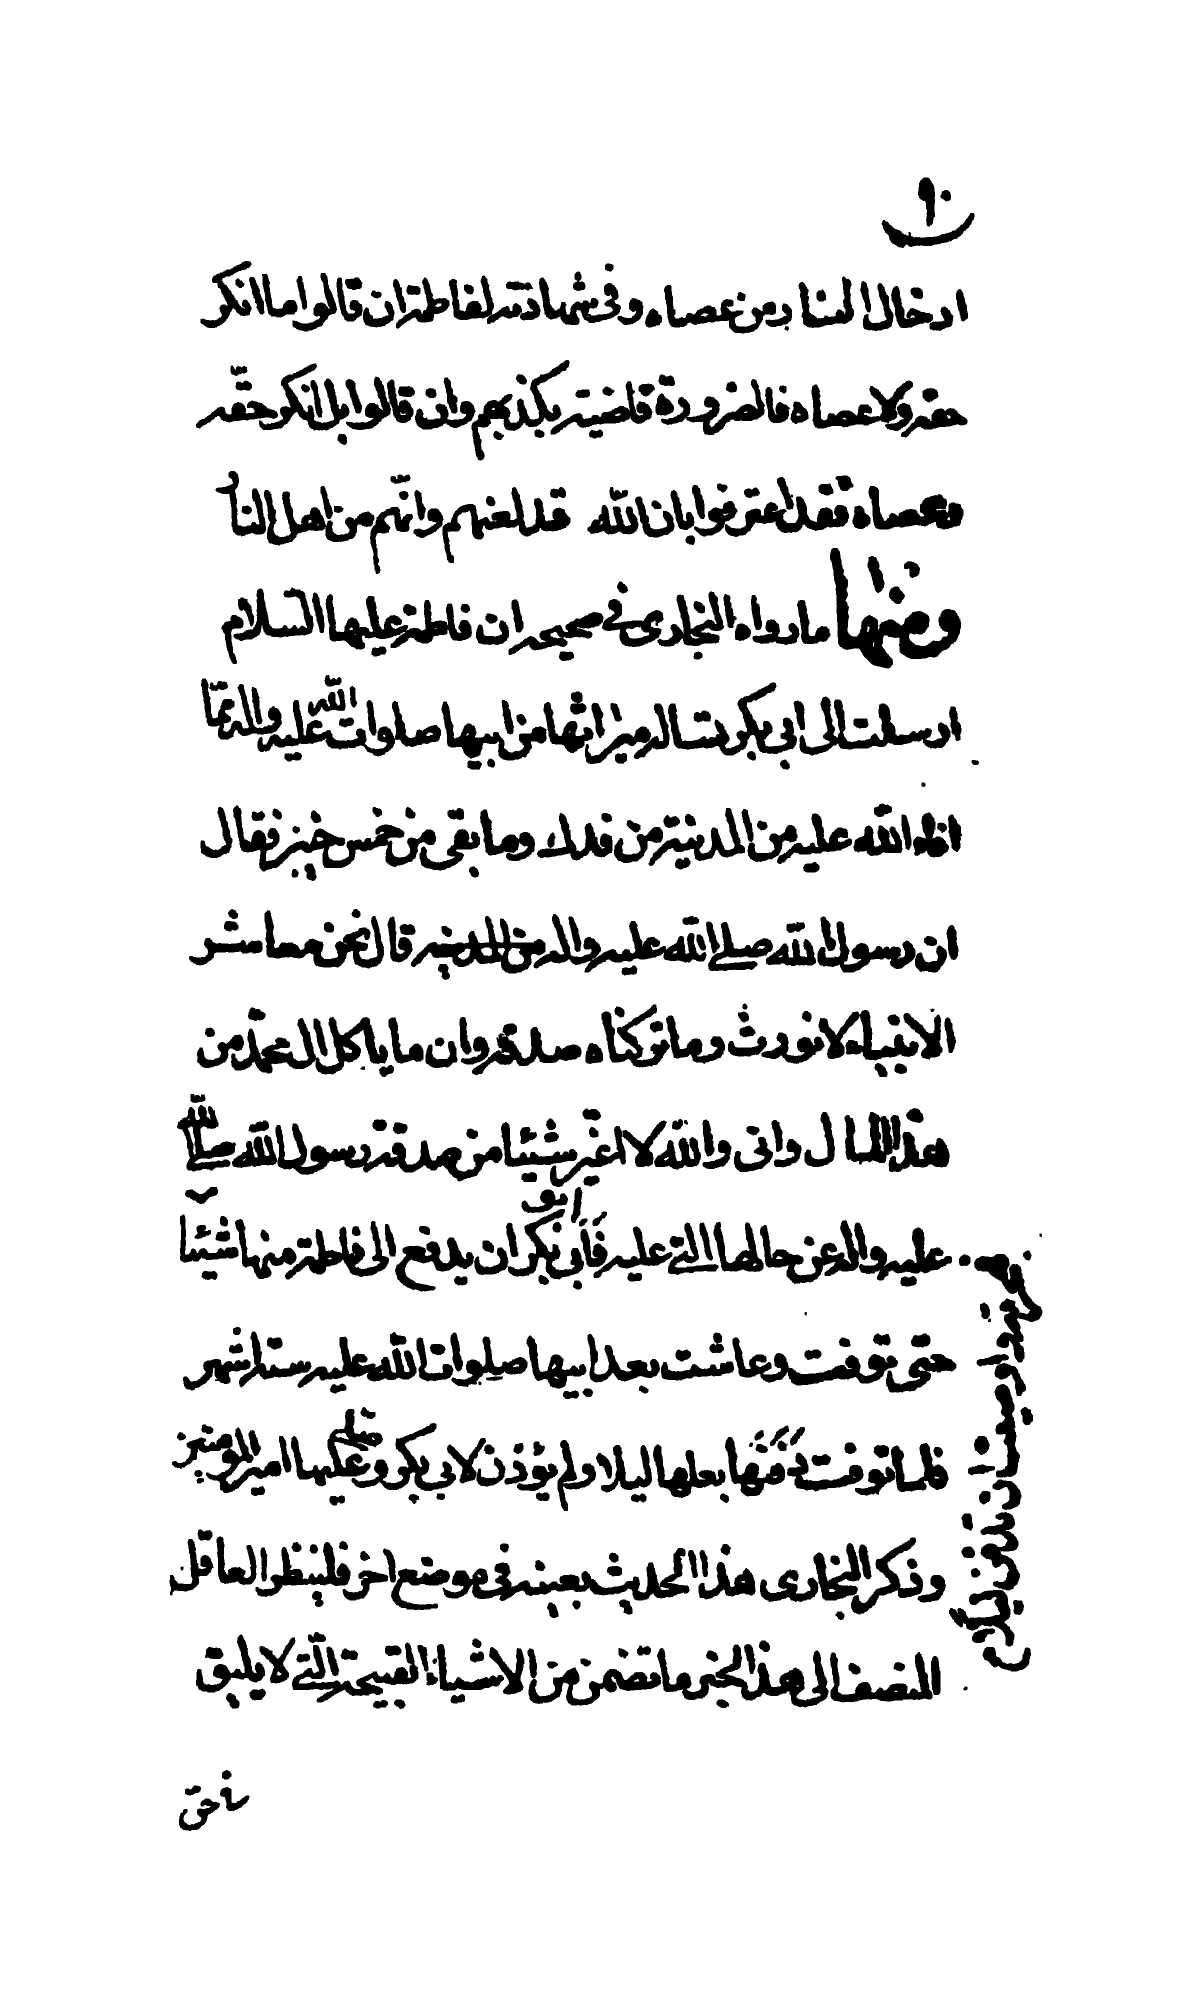 ٩٠
ادخال النار من عصاه وفي شهادته لفاطمة ان قالوا ما انكر
حقه ولا عصاه فالضرورة قاضية بكذبهم وان قالوا بل انكر حقه
وعصاه فقد اعترفوا بان الله قد لعنهم وانهم من اهل النار
ومنها ما رواه البخارى في صحيحه ان فاطمة عليها السلام
ارسلت الى ابي بكر تساله ميراثها من ابيها صلوات الله عليه واله مما
افاء الله عليه من المدينة من فدك وما بقى من خمس خيبر فقال
ان رسول الله صلى الله عليه واله من المدينه قال نحن معاشر
الانبياء لا نورث وما تركناه صدقة وان ما ياكل ال محمد من
هذا المال وانى والله لا اغير شيئا من صدقة رسول الله صلى الله
عليه واله عن حالها التى عليه فأبى ابو بكر ان يدفع الى فاطمة منها شيئا
حتى توفت وعاشت بعد ابيها صلوات الله عليه ستة اشهر
فلما توفت دفنها بعلها ليلا ولم يؤذن لابي بكر وصلى عليها امير المؤمنين
وذكر البخارى هذا الحديث بعينه في موضع اخر فلينظر العاقل
المنصف الى هذا الخبر ما تضمن من الاشياء القبيحة التى لا يليق
ان تدفن ليلا
في حق